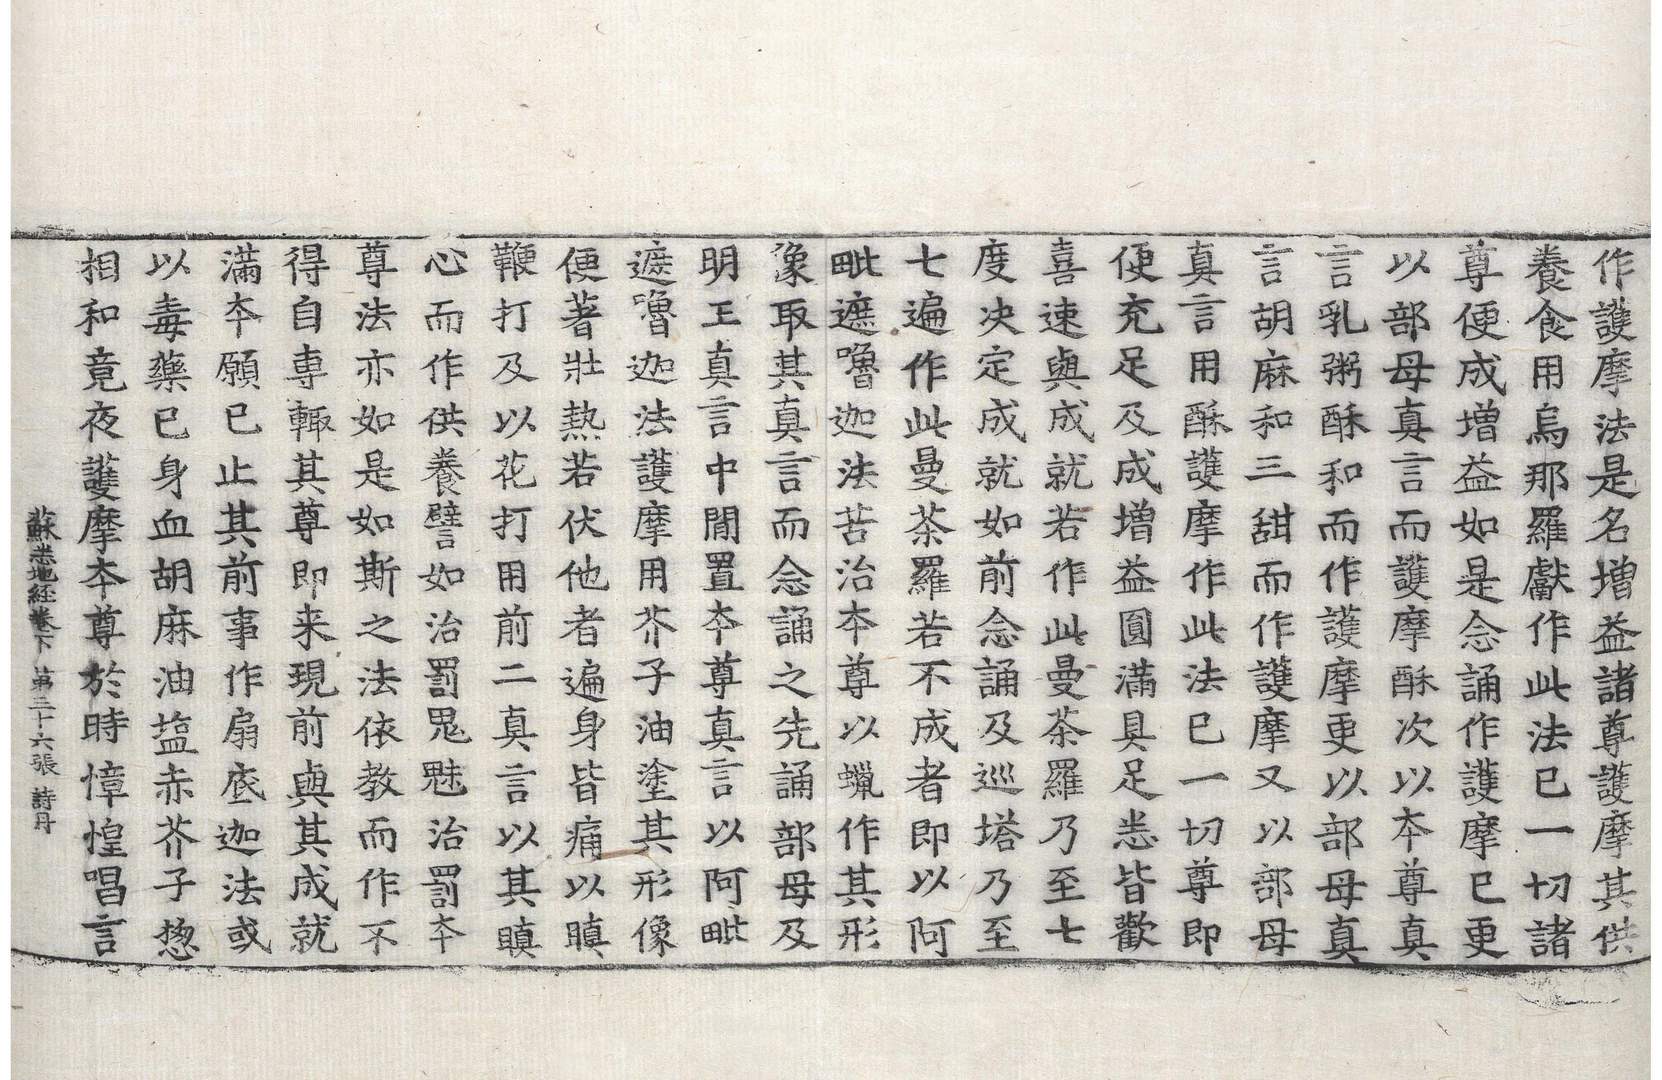 作護摩法是名增益諸尊護摩其供
養食用烏那羅獻作此法已一切諸
尊便成增益如是念誦作護摩已更
以部母真言而護摩酥次以本尊真
言乳粥酥和而作護摩更以部母真
言胡麻和三甜而作護摩又以部母
真言用酥護摩作此法已一切尊即
便充足及成增益圓滿具足悉皆歡
喜速與成就若作此曼荼羅乃至七
度决定成就如前念誦及巡塔乃至
七遍作此曼荼羅若不成者即以阿
毗遮嚕迦法苦治本尊以蠟作其形
像取其真言而念誦之先誦部母及
明王真言中間置本尊真言以阿毗
遮嚕迦法護摩用芥子油塗其形像
便著壯熱若伏他者遍身皆痛以瞋
鞭打及以花打用前二真言以其瞋
心而作供養譬如治罰鬼魅治罰本
尊法亦如是如斯之法依教而作不
得自専輙其尊即来現前與其成就
滿本願已止其前事作扇底迦法或
以毒藥已身血胡麻油塩赤芥子惣
相和竟夜護摩本尊於時慞惶唱言
蘇悉地経卷下 第三十六張 詩丹